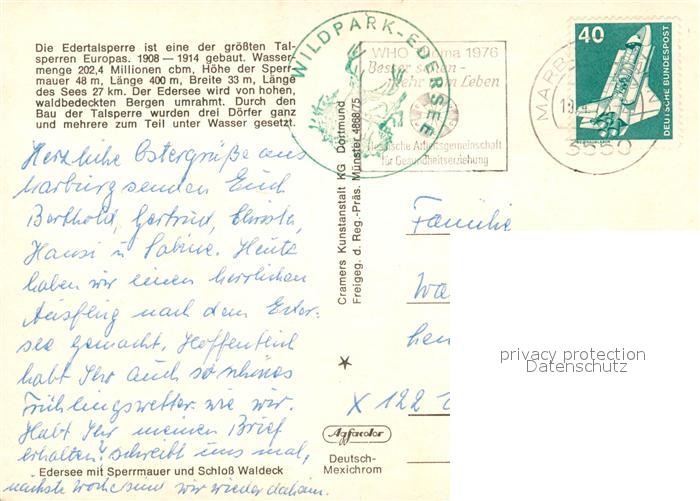 Die Edertalsperre ist eine der größten Tal-
sperren Europas. 1908 — 1914 gebaut. Wasser-
menge 202,4 Millionen cbm, Höhe der Sperr-
mauer 48 m, Länge 400 m, Breite 33 m, Länge
des Sees 27 km. Der Edersee wird von hohen,
waldbedeckten Bergen umrahmt. Durch den
Bau der Talsperre wurden drei Dörfer ganz
und mehrere zum Teil unter Wasser gesetzt.
WILDPARK-EDERSEE
WHO 1976
Besser sehen -
mehr vom Leben
Deutsche Arbeitsgemeinschaft
für Gesundheitserziehung
MARBURG
3550
40
DEUTSCHE BUNDESPOST
Herzliche Ostergrüße aus
Marburg senden Euch
Berthold, Gertrud, Christa,
Hansi u. Sabine. Heute
haben wir einen herrlichen
Ausflug nach dem Eder-
see gemacht. Hoffentlich
habt Ihr auch so schönes
Frühlingswetter wie wir.
Habt Ihr meinen Brief
erhalten? Schreibt uns mal,
nächste Woche sind wir wieder daheim.
Edersee mit Sperrmauer und Schloß Waldeck
Cramers Kunstanstalt KG Dortmund
Freigeg. d. Reg.-Präs. Münster 4868/75
Agfacolor
Deutsch-
Mexichrom
Familie
Wa
X 122
privacy protection
Datenschutz